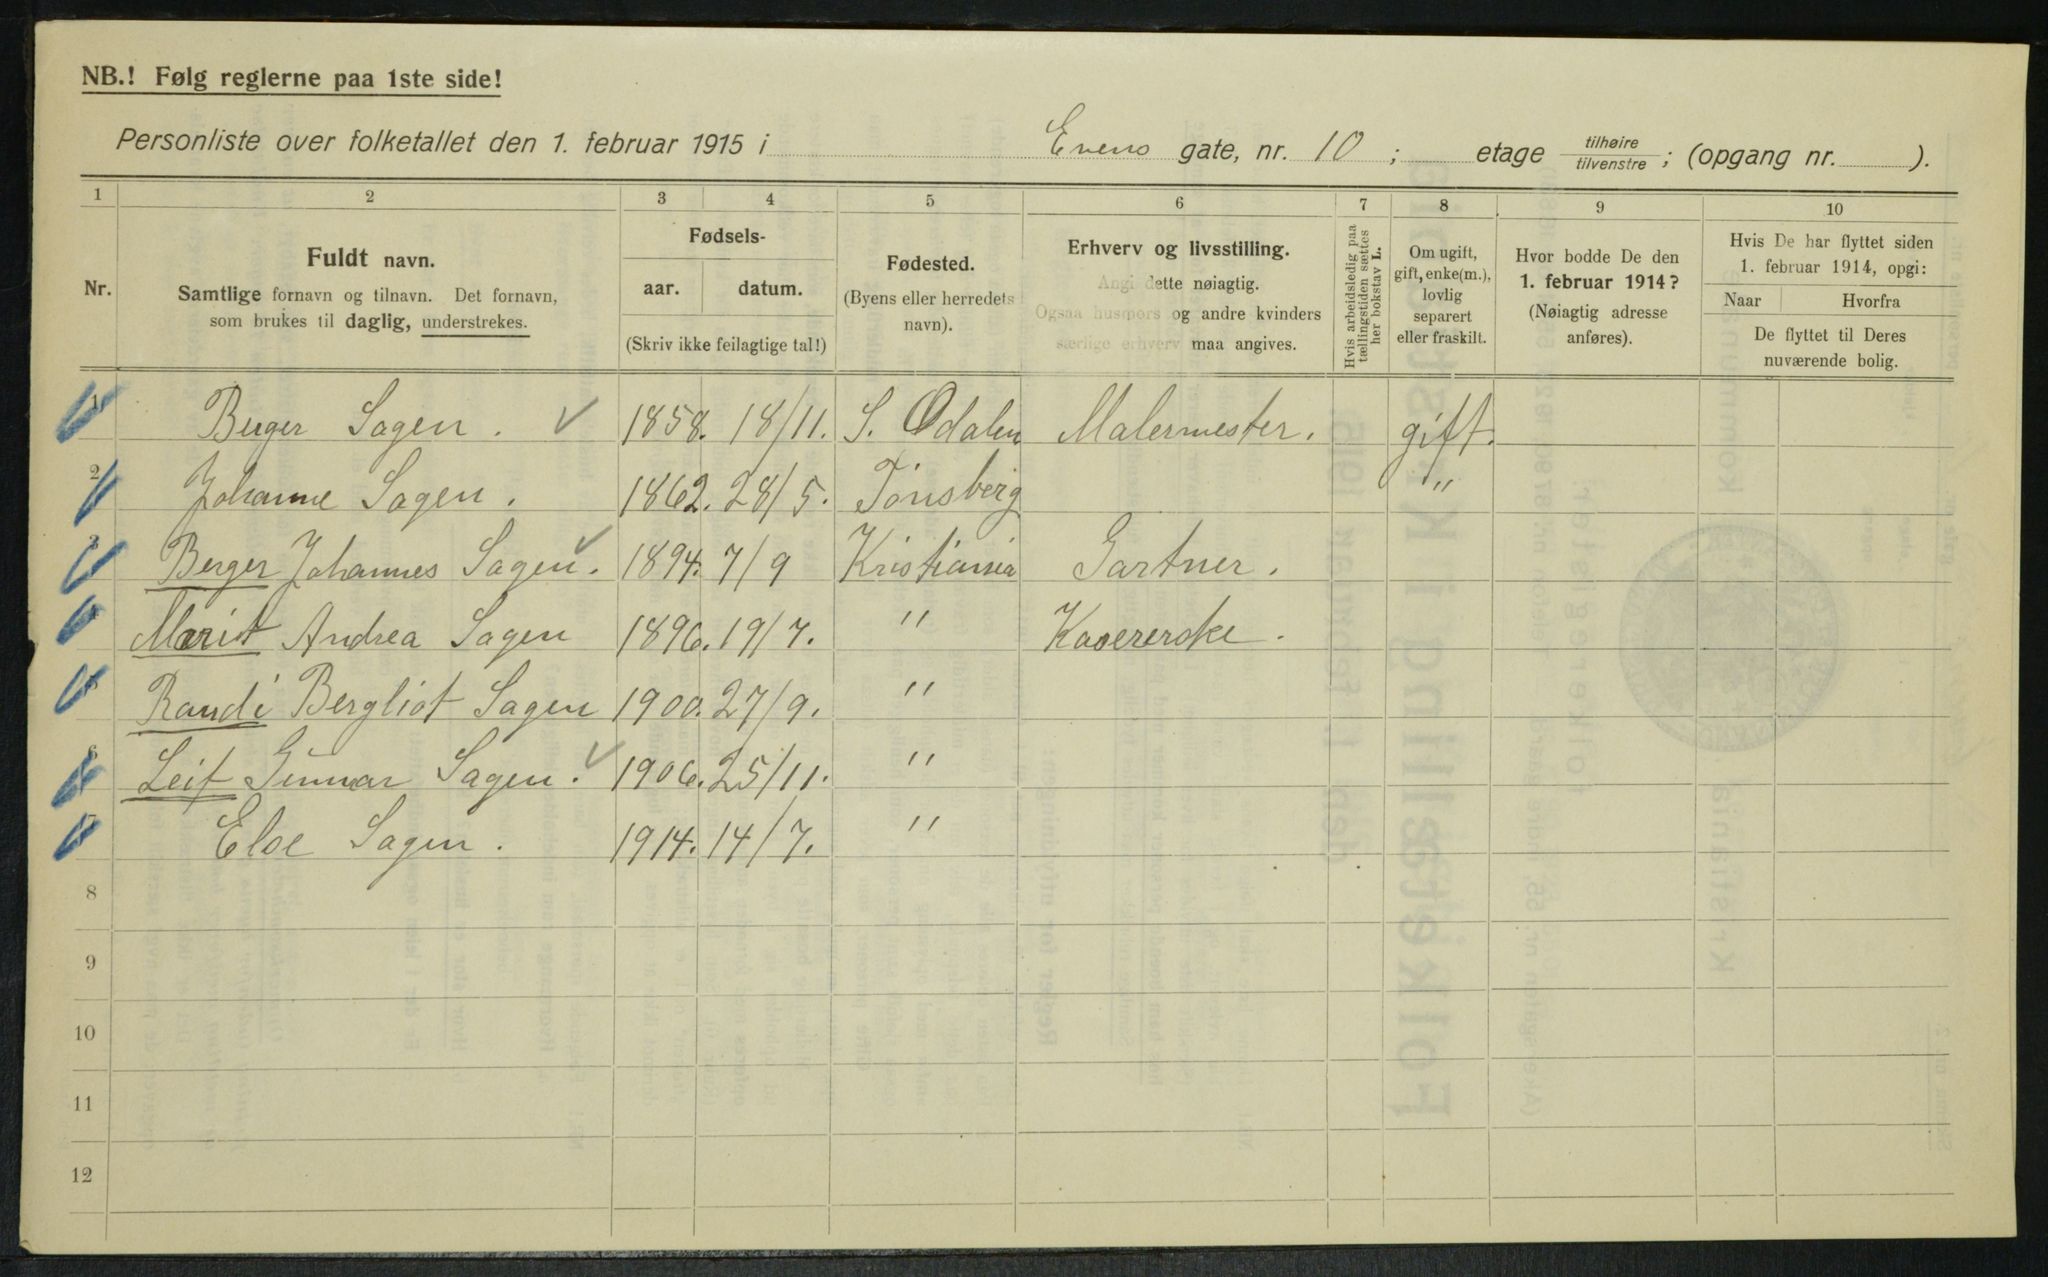 NB.! Følg reglerne paa 1ste side!
Personliste over folketallet den 1. februar 1915 i Evens gate, nr. 10 ; etage tilhøire / tilvenstre ; (opgang nr. ).
1 2 3 4 5 6 7 8 9 10
Nr.
Fuldt navn.
Samtlige fornavn og tilnavn. Det fornavn,
som brukes til daglig, understrekes.
Fødsels-
aar. datum.
(Skriv ikke feilagtige tal!)
Fødested.
(Byens eller herredets
navn).
Erhverv og livsstilling.
Angi dette nøiagtig.
Ogsaa husmors og andre kvinders
særlige erhverv maa angives.
Hvis arbeidsledig paa
tællingstiden sættes
her bokstav L.
Om ugift,
gift, enke(m.),
lovlig
separert
eller fraskilt.
Hvor bodde De den
1. februar 1914?
(Nøiagtig adresse
anføres).
Hvis De har flyttet siden
1. februar 1914, opgi:
Naar Hvorfra
De flyttet til Deres
nuværende bolig.
1 Berger Sagen. 1858. 18/11. S. Odalen Malermester. gift.
2 Johanne Sagen. 1862. 28/5. Tönsberg "
3 Berger Johannes Sagen. 1894. 7/9 Kristiania Gartner.
4 Marit Andrea Sagen 1896. 19/7. "
5 Randi Bergliot Sagen 1900. 27/9. "
6 Leif Gunnar Sagen. 1906. 25/11. "
7 Else Sagen. 1914. 14/7. "
8
9
10
11
12